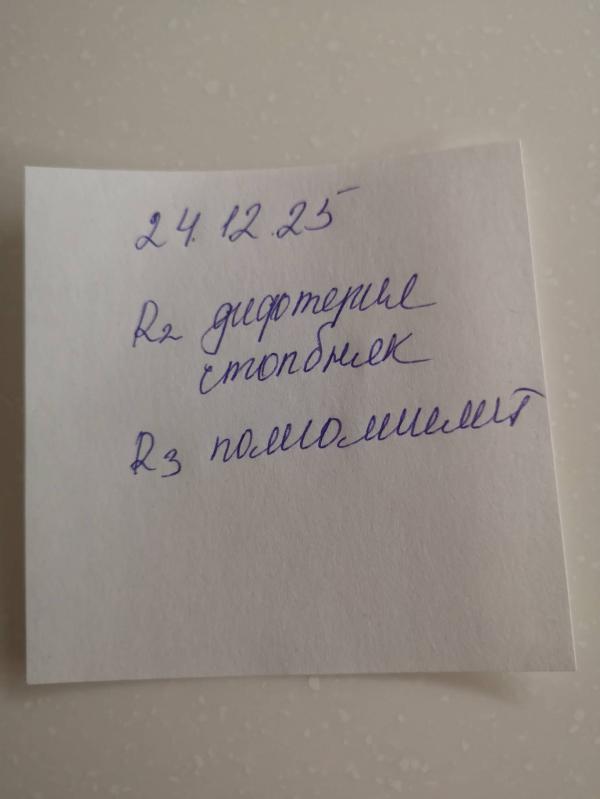 24.12.25
R2 дифтерия
столбняк
R3 полиомиелит